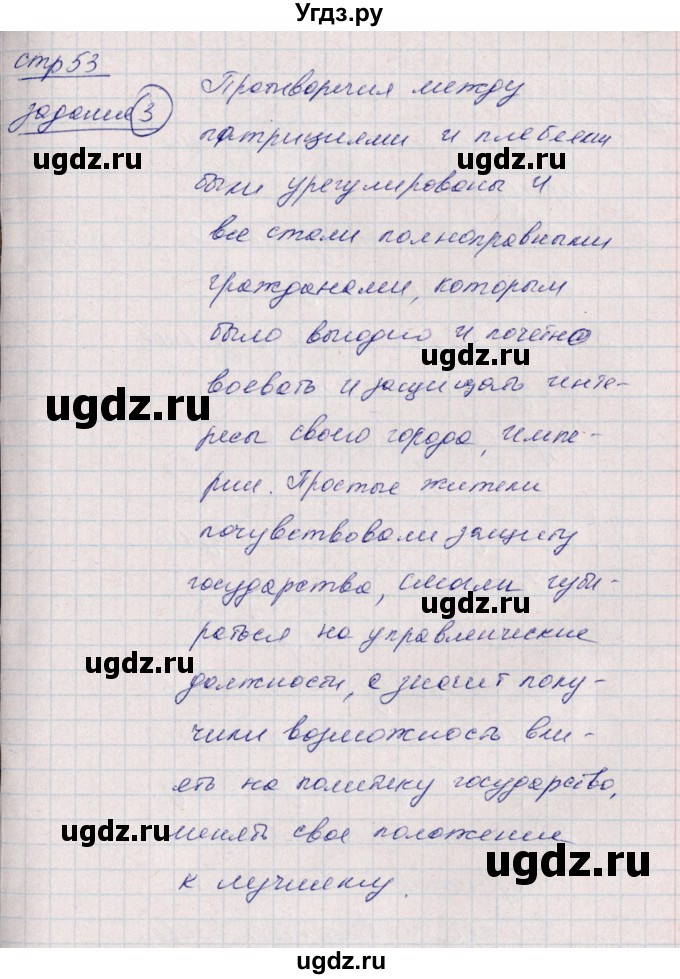 Угдз.ру
стр 53
задание 3
Противоречия между
патрициями и плебеями
были урегулированы и
все стали полноправными
гражданами, которым
было выгодно и почётно
воевать и защищать инте-
ресы своего города, импе-
рии. Простые жители
почувствовали защиту
государства, смогли изби-
раться на управленческие
должности, а значит полу-
чили возможность вли-
ять на политику государства,
менять свое положение
к лучшему.
ugdz.ru
ugdz.ru
ugdz.ru
ugdz.ru
ugdz.ru
ugdz.ru
ugdz.ru
ugdz.ru
ugdz.ru
ugdz.ru